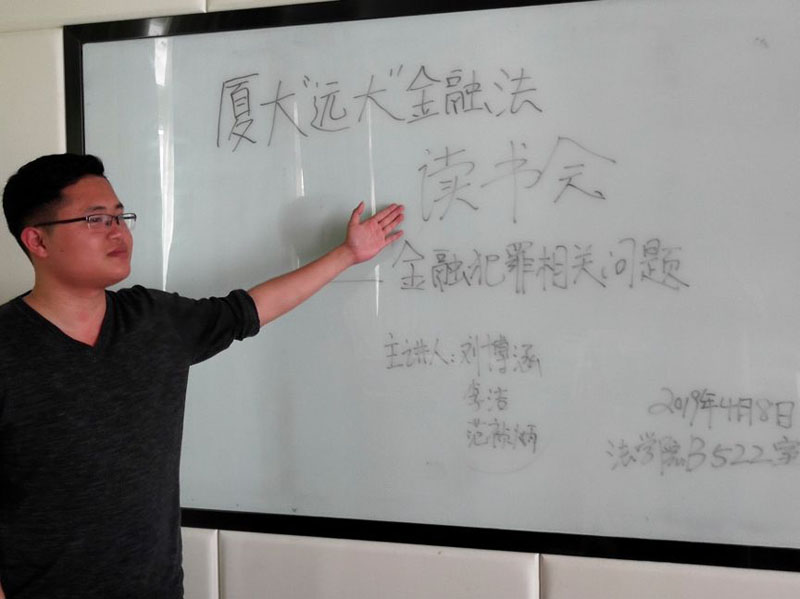 厦大“远大”金融法
读书会
——金融犯罪相关问题
主讲人:刘博涵
李洁
2019年4月8日
法学院B522室